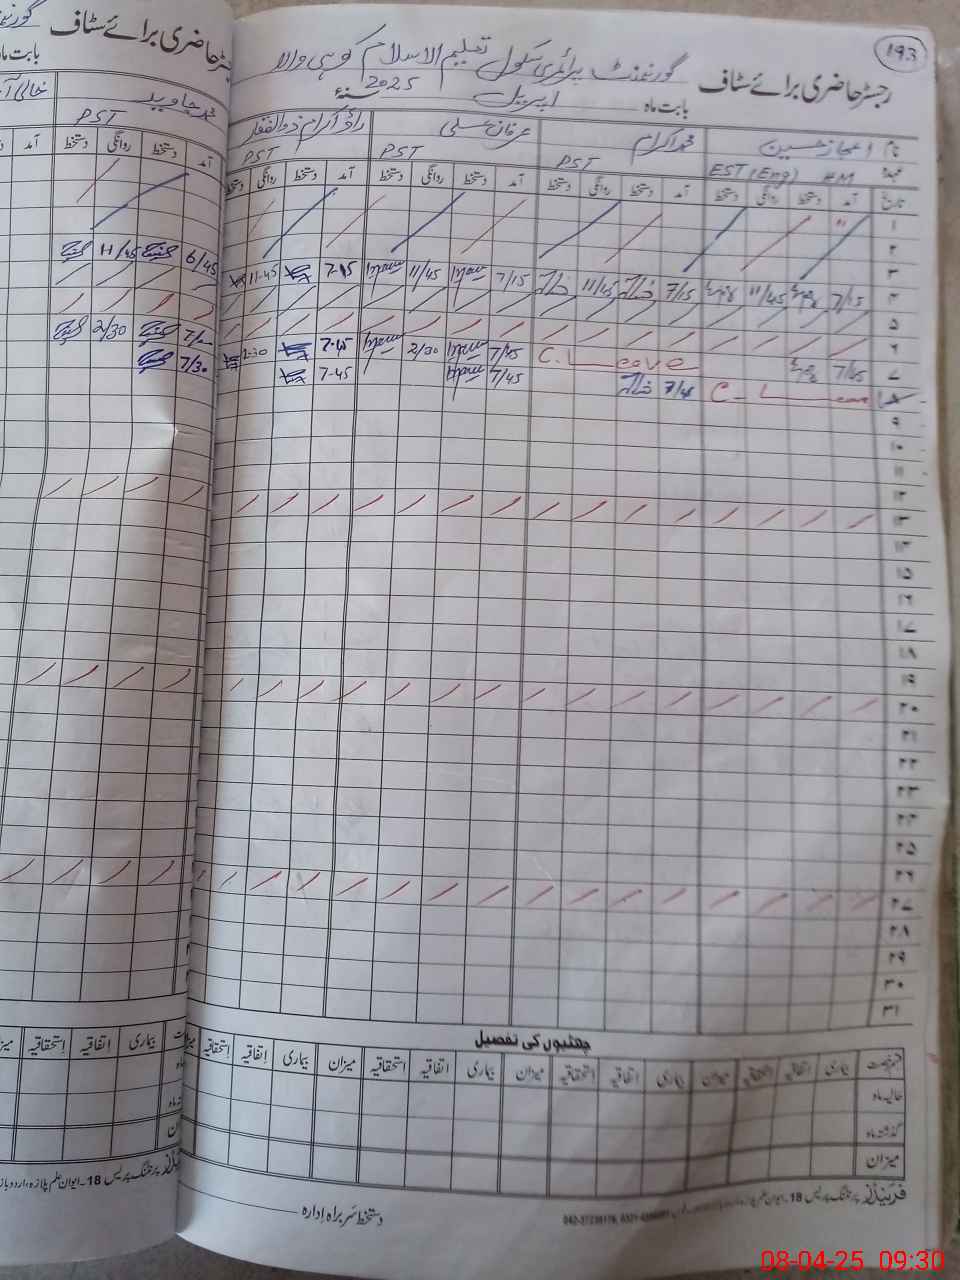 193
رجسٹر حاضری برائے سٹاف
گورنمنٹ پرائمری سکول تعلیم الاسلام کوہی والا
بابت ماہ اپریل 2025 سنۂ
نام اعجاز حسین محمد اکرام عرفان علی راؤ اکرام ذوالفقار
عہدہ EST (Eng) HM PST PST PST
تاریخ آمد دستخط روانگی دستخط آمد دستخط روانگی دستخط آمد دستخط روانگی دستخط آمد دستخط روانگی دستخط
۱
۲
۳
۴ 7/15 11/45 7/15 11/45 7/15 11/45 7-15 11-45
۵
۶
۷ 7/45 C. Leave 7/45 2/30 7-45 2-30
۸ C. Leave 7/45 7/45 7-45
۹
۱۰
۱۱
۱۲
۱۳
۱۴
۱۵
۱۶
۱۷
۱۸
۱۹
۲۰
۲۱
۲۲
۲۳
۲۴
۲۵
۲۶
۲۷
۲۸
۲۹
۳۰
۳۱
چھٹیوں کی تفصیل
قسم رخصت بیماری اتفاقیہ استحقاقیہ میزان بیماری اتفاقیہ استحقاقیہ میزان بیماری اتفاقیہ استحقاقیہ میزان بیماری اتفاقیہ استحقاقیہ
حالیہ ماہ
گذشتہ ماہ
میزان
فرینڈز پرنٹنگ پریس 18۔ایوان علم پلازہ،
دستخط سربراہ ادارہ
رجسٹر حاضری برائے سٹاف
بابت ماہ
محمد جاوید
PST
آمد دستخط روانگی دستخط آمد
6/45 11/45
2/30
7/30
میزان استحقاقیہ اتفاقیہ بیماری
پرنٹنگ پریس 18۔ایوان علم پلازہ،اردو بازار
08-04-25 09:30